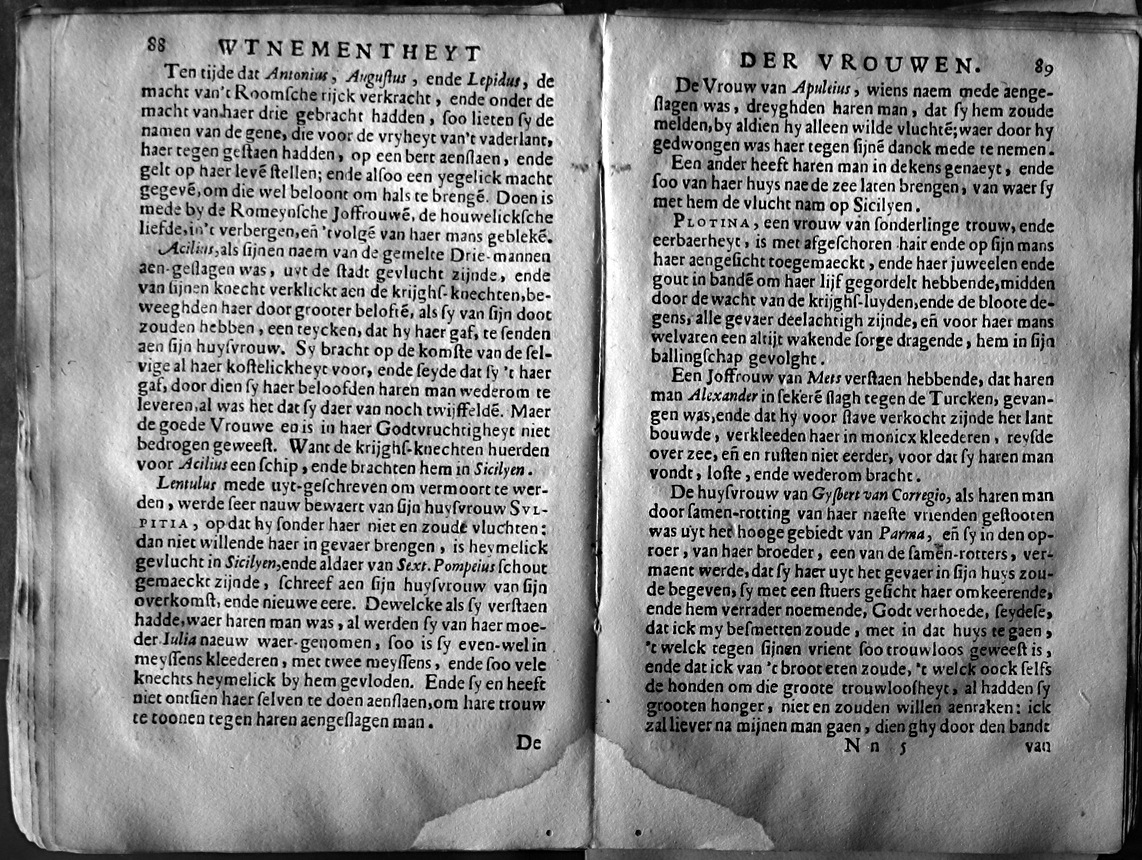 88 WTNEMENTHEYT
Ten tijde dat Antonius, Augustus, ende Lepidus, de
macht van't Roomsche rijck verkracht, ende onder de
macht van haer drie gebracht hadden, soo lieten sy de
namen van de gene, die voor de vryheyt van't vaderlant,
haer tegen gestaen hadden, op een bert aenslaen, ende
gelt op haer levē stellen; ende alsoo een yegelick macht
gegevē, om die wel beloont om hals te brengē. Doen is
mede by de Romeynsche Joffrouwē, de houwelicksche
liefde, in't verbergen, eñ 'tvolgē van haer mans geblekē.
Acilius, als sijnen naem van de gemelte Drie-mannen
aen-geslagen was, uyt de stadt gevlucht zijnde, ende
van sijnen knecht verklickt aen de krijghs-knechten, be-
weeghden haer door grooter beloftē, als sy van sijn doot
zouden hebben, een teycken, dat hy haer gaf, te senden
aen sijn huysvrouw. Sy bracht op de komste van de sel-
vige al haer kostelickheyt voor, ende seyde dat sy 't haer
gaf, door dien sy haer beloofden haren man wederom te
leveren, al was het dat sy daer van noch twijffeldē. Maer
de goede Vrouwe en is in haer Godtvruchtigheyt niet
bedrogen geweest. Want de krijghs-knechten huerden
voor Acilius een schip, ende brachten hem in Sicilyen.
Lentulus mede uyt-geschreven om vermoort te wer-
den, werde seer nauw bewaert van sijn huysvrouw SVL-
PITIA, op dat hy sonder haer niet en zoude vluchten:
dan niet willende haer in gevaer brengen, is heymelick
gevlucht in Sicilyen, ende aldaer van Sext. Pompeius schout
gemaeckt zijnde, schreef aen sijn huysvrouw van sijn
overkomst, ende nieuwe eere. Dewelcke als sy verstaen
hadde, waer haren man was, al werden sy van haer moe-
der Iulia naeuw waer-genomen, soo is sy even-wel in
meyssens kleederen, met twee meyssens, ende soo vele
knechts heymelick by hem gevloden. Ende sy en heeft
niet ontsien haer selven te doen aenslaen, om hare trouw
te toonen tegen haren aengeslagen man.
De
DER VROUWEN. 89
De Vrouw van Apuleius, wiens naem mede aenge-
slagen was, dreyghden haren man, dat sy hem zoude
melden, by aldien hy alleen wilde vluchtē; waer door hy
gedwongen was haer tegen sijnē danck mede te nemen.
Een ander heeft haren man in dekens genaeyt, ende
soo van haer huys nae de zee laten brengen, van waer sy
met hem de vlucht nam op Sicilyen.
PLOTINA, een vrouw van sonderlinge trouw, ende
eerbaerheyt, is met afgeschoren hair ende op sijn mans
haer aengesicht toegemaeckt, ende haer juweelen ende
gout in bandē om haer lijf gegordelt hebbende, midden
door de wacht van de krijghs-luyden, ende de bloote de-
gens, alle gevaer deelachtigh zijnde, eñ voor haer mans
welvaren een altijt wakende sorge dragende, hem in sijn
ballingschap gevolght.
Een Joffrouw van Mets verstaen hebbende, dat haren
man Alexander in sekerē slagh tegen de Turcken, gevan-
gen was, ende dat hy voor slave verkocht zijnde het lant
bouwde, verkleeden haer in monicx kleederen, reysde
over zee, eñ en rusten niet eerder, voor dat sy haren man
vondt, loste, ende wederom bracht.
De huysvrouw van Gysbert van Corregio, als haren man
door samen-rotting van haer naeste vrienden gestooten
was uyt het hooge gebiedt van Parma, eñ sy in den op-
roer, van haer broeder, een van de samēn-rotters, ver-
maent werde, dat sy haer uyt het gevaer in sijn huys zou-
de begeven, sy met een stuers gesicht haer omkeerende,
ende hem verrader noemende, Godt verhoede, seydese,
dat ick my besmetten zoude, met in dat huys te gaen,
't welck tegen sijnen vrient soo trouwloos geweest is,
ende dat ick van 't broot eten zoude, 't welck oock selfs
de honden om die groote trouwloosheyt, al hadden sy
grooten honger, niet en zouden willen aenraken: ick
zal liever na mijnen man gaen, dien ghy door den bandt
N n 5 van